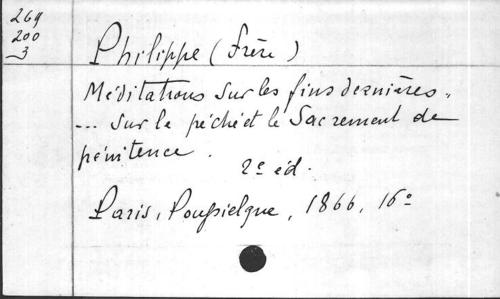 269
200
3
Philippe (Frère)
Méditations sur les fins dernières.
... sur le péché et le Sacrement de
pénitence.
2e éd.
Paris, Poussielgue, 1866, 16°